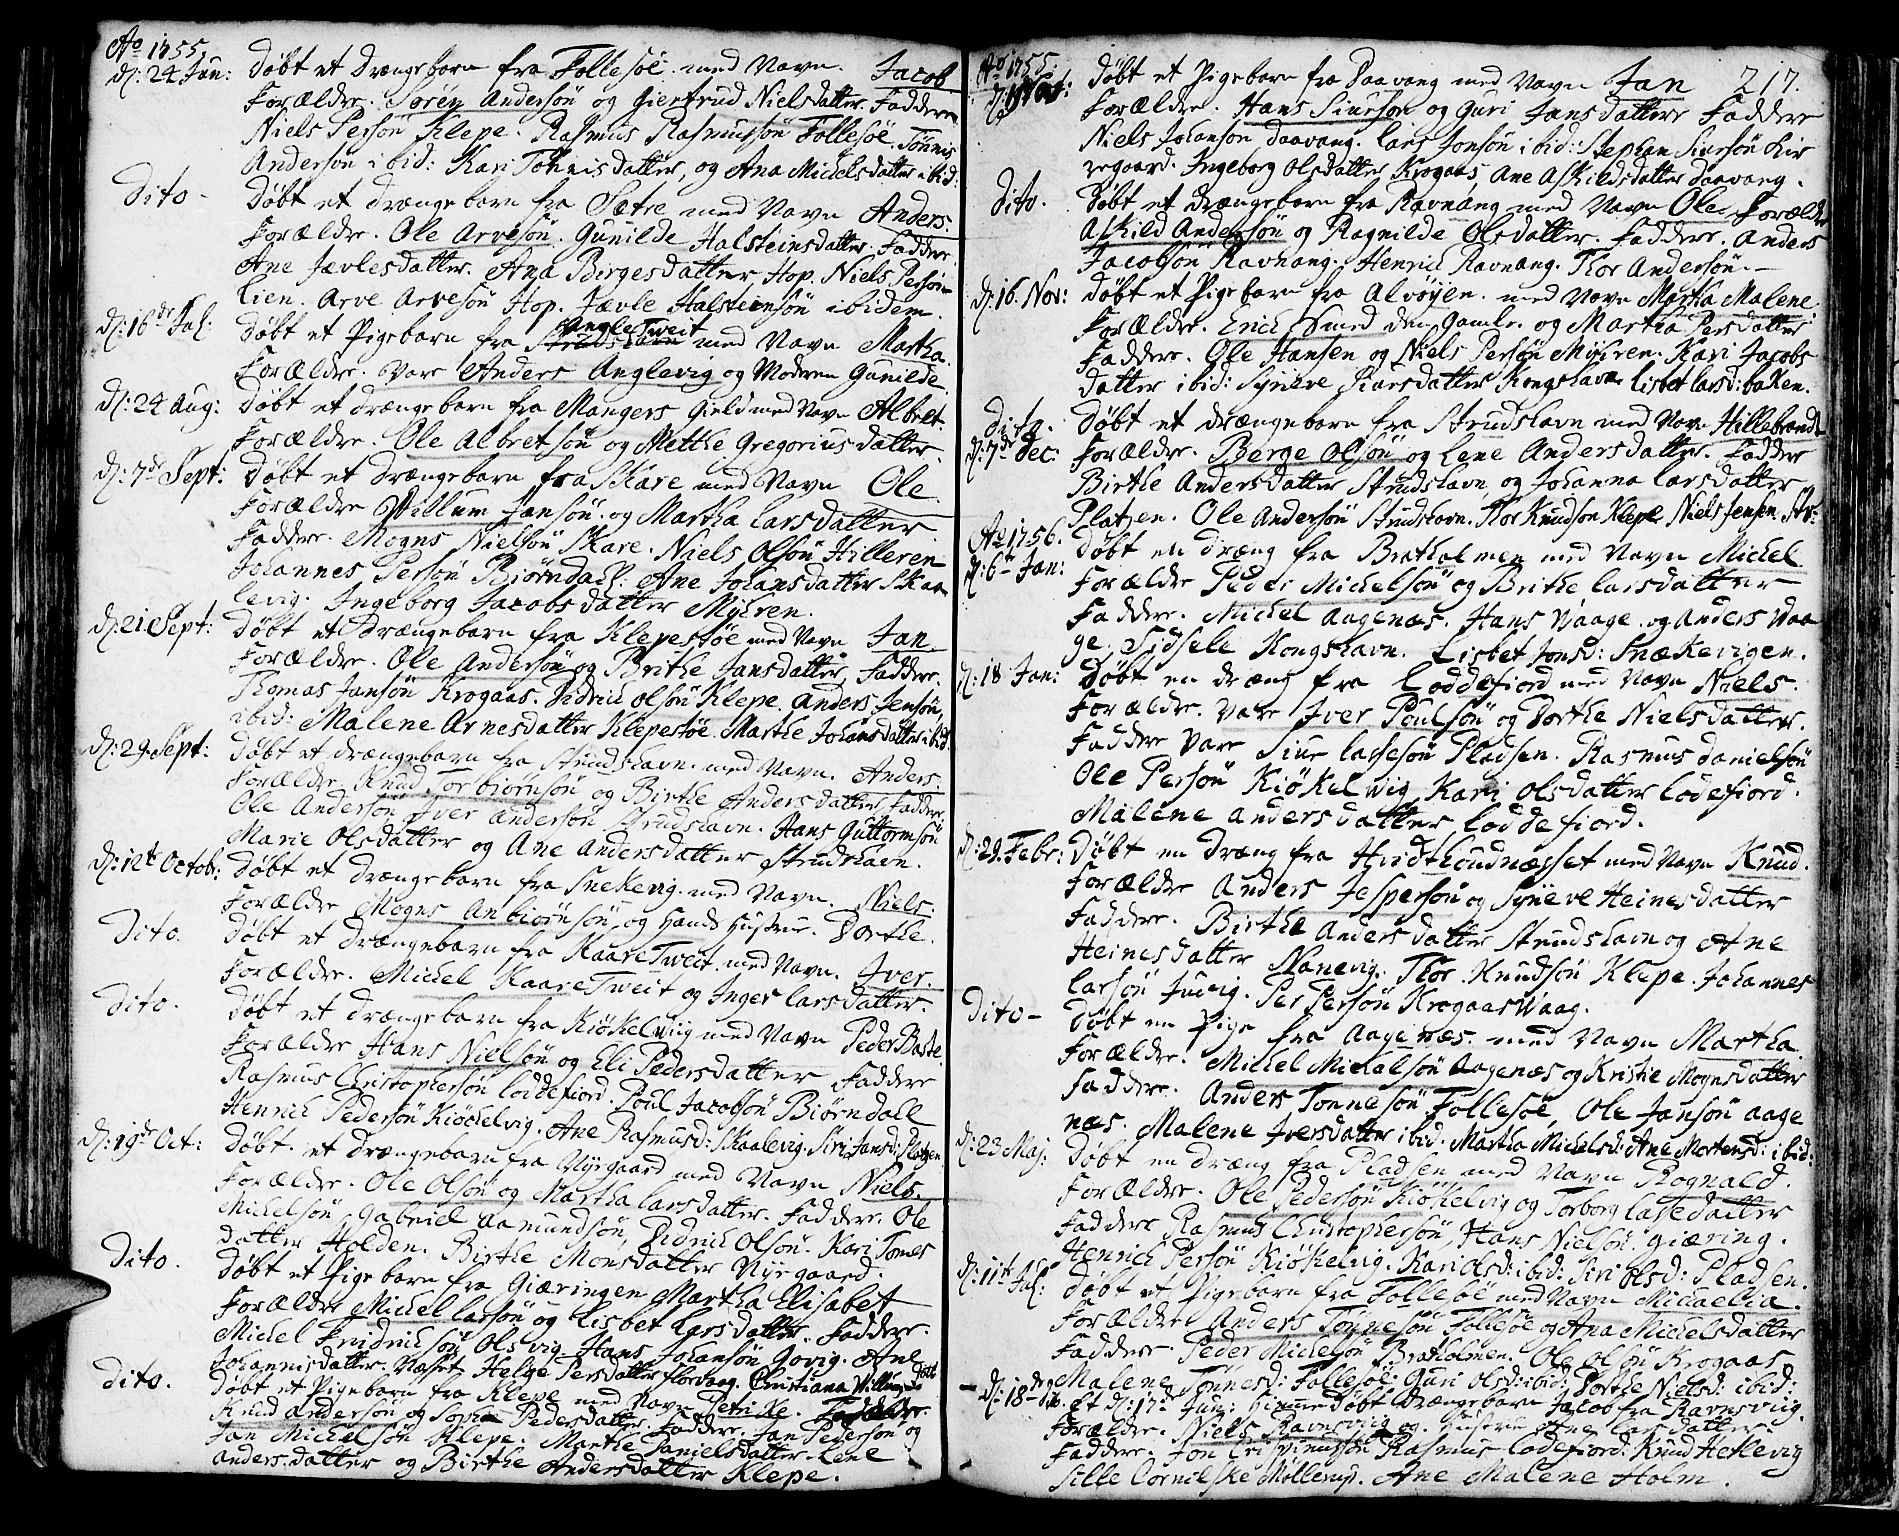 Ao 1755.
d: 24 Jun: Døbt et Drængebarn fra Follesöe med Navn Jacob
Forældre. Sören Andersön og Giertrud Nielsdatter. Faddere
Niels Persön Klepe. Rasmus Rasmussön Follesöe. Tönnis
Andersön ibid: Kari Tönnisdatter, og Ana Michelsdatter ibid:
Dito - Døbt et drængebarn fra Sætre med Navn Anders.
Forældre. Ole Arvesön. Gunilde Halsteinsdatter. Faddere.
Ane Jævlesdatter. Ana Birgesdatter Hop. Niels Persön
Lien. Arve Arvesön Hop. Jævle Halsteensön ibidem.
d: 16de Jul: Døbt et Pigebarn fra AngleTweit med Navn Martha.
Forældre. Vare Anders Anglevig og Moderen Gunilde
d: 24 Aug: Døbt et drængebarn fra Mangers Gield med Navn Albret.
Forældre. Ole Albretsön og Mette Gregorius datter.
d: 7de Sept: Døbt et Drængebarn fra Skare med Navn Ole.
Forældre Willum Jansön og Martha Larsdatter
Faddere. Mogns Nielsön Skare. Niels Olsön Hilleren
Johannes Persön Biörndahl: Ane Johansdatter Skaa
levig. Ingeborg Jacobsdatter Myhren.
d: 21 Sept: Døbt et Drængebarn fra Klepesöe med Navn Jan.
Forældre. Ole Andersön og Brithe Jansdatter, Faddere.
Thomas Jansön Krogaas. Didrich Olsön Klepe. Anders Jensön,
ibid: Malene Arnesdatter Klepesöe. Marthe Johansdatter ibid:
d: 29 Sept: Døbt et drængebarn fra Strudshavn med Navn. Anders.
Forældre Knud Torbiörnsön og Birthe Andersdatter, Faddere
Ole Andersön Iver Andersön Strudshavn. Hans Guttormsön
Marie Olsdatter og Ane Andersdatter Strudshavn.
d: 12te Octobr: Døbt et drængebarn fra Snekevig med Navn. Niels.
Forældre Mogns Anbiörnsön og Hands Hustrue. Dorthe.
Dito. Døbt et drængebarn fra KaareTweit med Navn. Iver.
Forældre. Michel KaareTweit og Inger Larsdatter.
Dito. Døbt et drængebarn fra Kiökelwiig med Navn Peder Baste
Forældre Hans Nielsön og Eli Pedersdatter Faddere
Rasmus Christophersön Loddefiord. Poul Jacobsön Biörndall
Henrich Pedersön Kiökelvig. Ane Rasmusd: Skaalevig. Siri Jansd: Platzen.
d: 19de Oct: Døbt et drængebarn fra Nyegaard med Navn Niels.
Forældre. Ole Olsön og Martha Larsdatter. Faddere. Ole
Michelsön, Gabriel Aamundsön, Didrich Olsön. Kari Tomes
datter Holden. Birthe Monsdatter Nyegaard.
Dito. Døbt et Pige barn fra Giæringen Martha Elisabet
Forældre Michel Larsön og Lisbet Larsdatter. Faddere.
Michel Fridrichsön Olsvig. Hans Johansön Govig. Ane
Johannisdatter. Næset Helge Persdatter Flordaag. Christiana Willumsdatt
Dito. Døbt et Pigebarn fra Klepe med Navn Petrike.
Knud Andersön og Sophia Pedersdatter. Faddere. Jan Pedersön og
Jan Michelsön Klepe. Marthe Danielsdatter. Lene
Andersdatter og Birthe Andersdatter Klepe.
Ao 1755. 217.
Døbt et Pigebarn fra Daavang med Navn Jan
Forældre. Hans Siursön og Guri Jansdatter Faddere
Niels Johansön Daavang. Lars Jonsön ibid: Stephan Siursön Kir
regaard. Ingeborg Olsdatter Krogaas, Ane Askildsdatter Daavang.
Dito. Døbt et drængebarn fra Ravnang med Navn Ole. Forældre
Askild Andersön og Ragnilde Olsdatter. Faddere. Anders
Jacobsön Ravnang. Henrich Ravnang. Thor Andersön.
d: 16. Nov: Døbt et Pigebarn fra Alvöyen. med Navn Martha Malene.
Forældre. Erich Smed den Gamle. og Martha Persdatter
Faddere. Ole Hansen og Niels Persön Myhren. Kari Jacobs
datter ibid: Synneve Roarsdatter Kongshavn Lisbet Larsd: bakken.
Dito. Døbt et drængebarn fra Strudshavn med Navn Hillebrandt
d: 7de Dec: Forældre. Berge Olsön og Lene Andersdatter. Faddere
Birthe Andersdatter Strudshavn og Johanna Larsdatter
Platzen. Ole Andersön Strudshavn. Thor Knudsön Klepe Niels Jensen Str:
Ao 1756.
d: 6te Jan: Døbt en dræng fra Bratholmen med Navn Michel
Forældre Peder Michelsön og Brithe Larsdatter
Faddere. Michel Aagenæs. Hans Waage. og Anders Waa
ge, Sidsele Kongshavn. Lisbet Jonsd: Snækevigen.
d: 18 Jan: Døbt en dræng fra Loddefiord med Navn Niels.
Forældre. Vare Iver Poulsön og Dorthe Nielsdatter.
Faddere Vare Siur Lassesön Pladsen. Rasmus Danielsön
Ole Persön Kiökelwig, Kari Olsdatter Lodefiord.
Malene Andersdatter Loddefiord.
d: 29. Febr: Døbt en Dræng fra Hvidthoudnæsset med Navn Knud.
Forældre Anders Jespersön og Syneve Heinesdatter
Faddere. Birthe Andersdatter Strudshavn og Ane
Heinesdatter Nanevig. Thor Knudsön Klepe. Johannes
Larsön Juvig. Per Persön Krogaas Waag.
Dito - Døbt en Pige fra Aagenæs. med Navn Martha.
Forældre. Michel Michelsön Aagenæs og Kristie Mognsdatter
Faddere. Anders Tönnesön Follesöe, Ole Jansön Aage
næs. Malene Iversdatter ibid. Martha Michelsd: Ane Mortensd: ibid:
d: 23 Maj: Døbt en dræng fra Pladsen med Navn Rognald.
Forældre. Ole Pedersön Kiökelvig og Torborg Lassedatter
Faddere Rasmus Christophersön, Hans Nielsön Giæring.
Henrich Persön Kiökelvig. Kari Olsd: ibid: Siri Olsd: Pladsen.
d: 11te Jul: Døbt et Pigebarn fra Follesöe med Navn Michaelia.
Forældre Anders Tönnesön Follesöe og Ana Michelsdatter
Faddere. Peder Michelsön Bratholmen. Ole Olsön Krogaas
Malene Tönnesd: Follesöe: Guri Olsd: ibid: Dorthe Nielsd: ibid:
d: 18de dito. Et d: 17de Jun: hiemmedøbt Drængebarn Jacob fra Ravnsviig.
Forældre. Niels Ravnsviig og Hustrue Ane Larsdatter.
Faddere. Jon Rasmus Lodefiord. Knud Hetlevig
Sille Cornelske Möllerup. Ane Malene Holm.